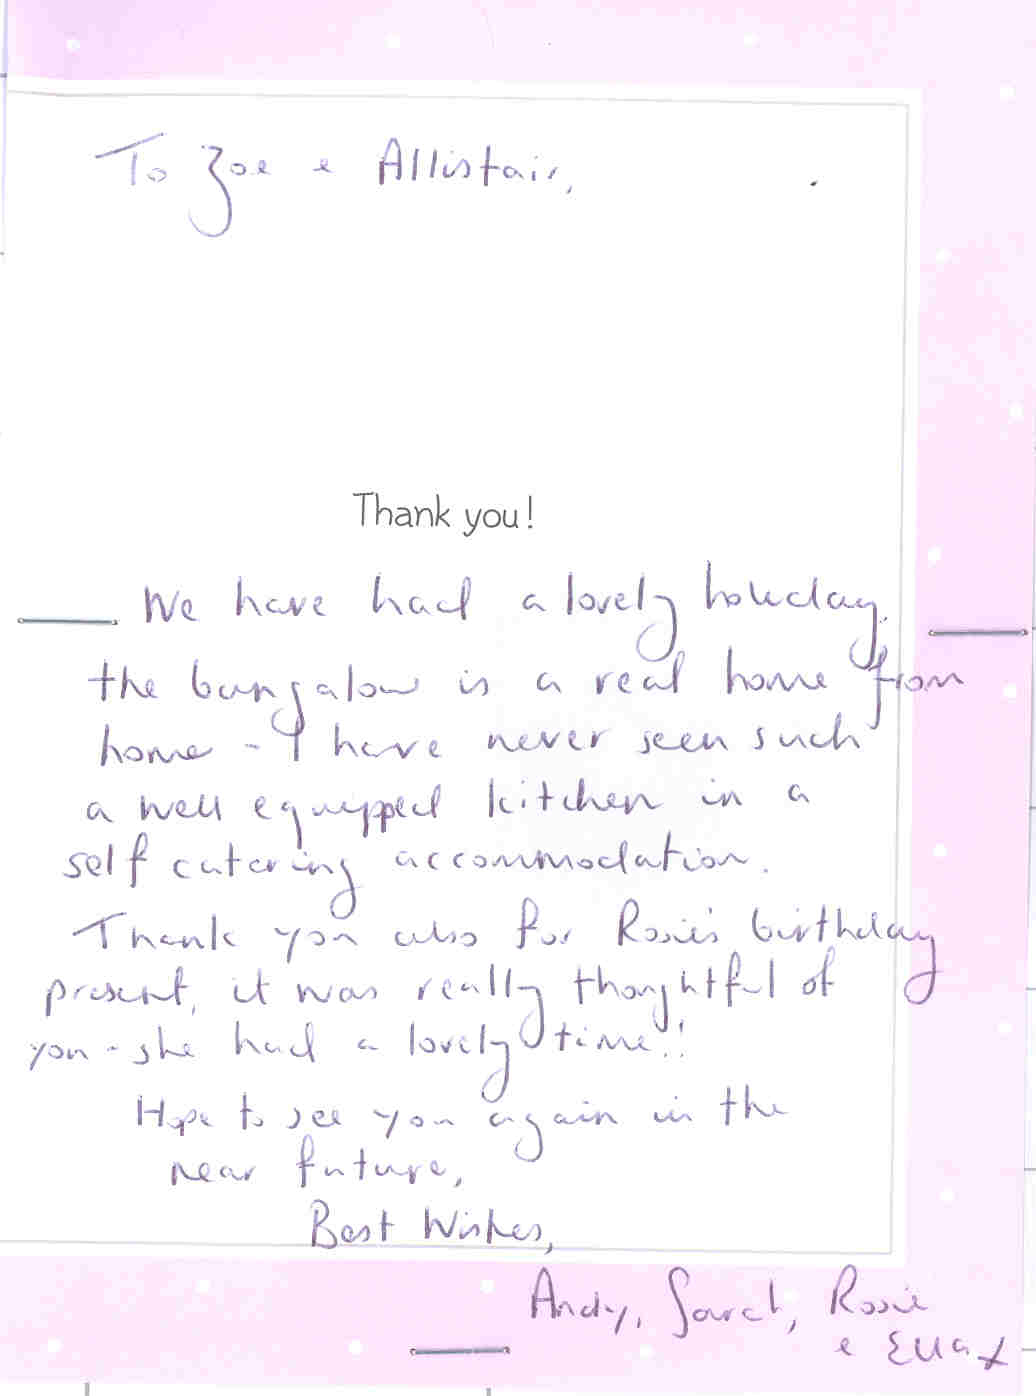 To Zoe e Allistair,
Thank you!
We have had a lovely holiday,
the bungalow is a real home from
home - I have never seen such
a well equipped kitchen in a
self catering accommodation.
Thank you also for Rosie's birthday
present, it was really thoughtful of
you - she had a lovely time!!
Hope to see you again in the
near future,
Best Wishes,
Andy, Sarah, Rosie
e Ella x